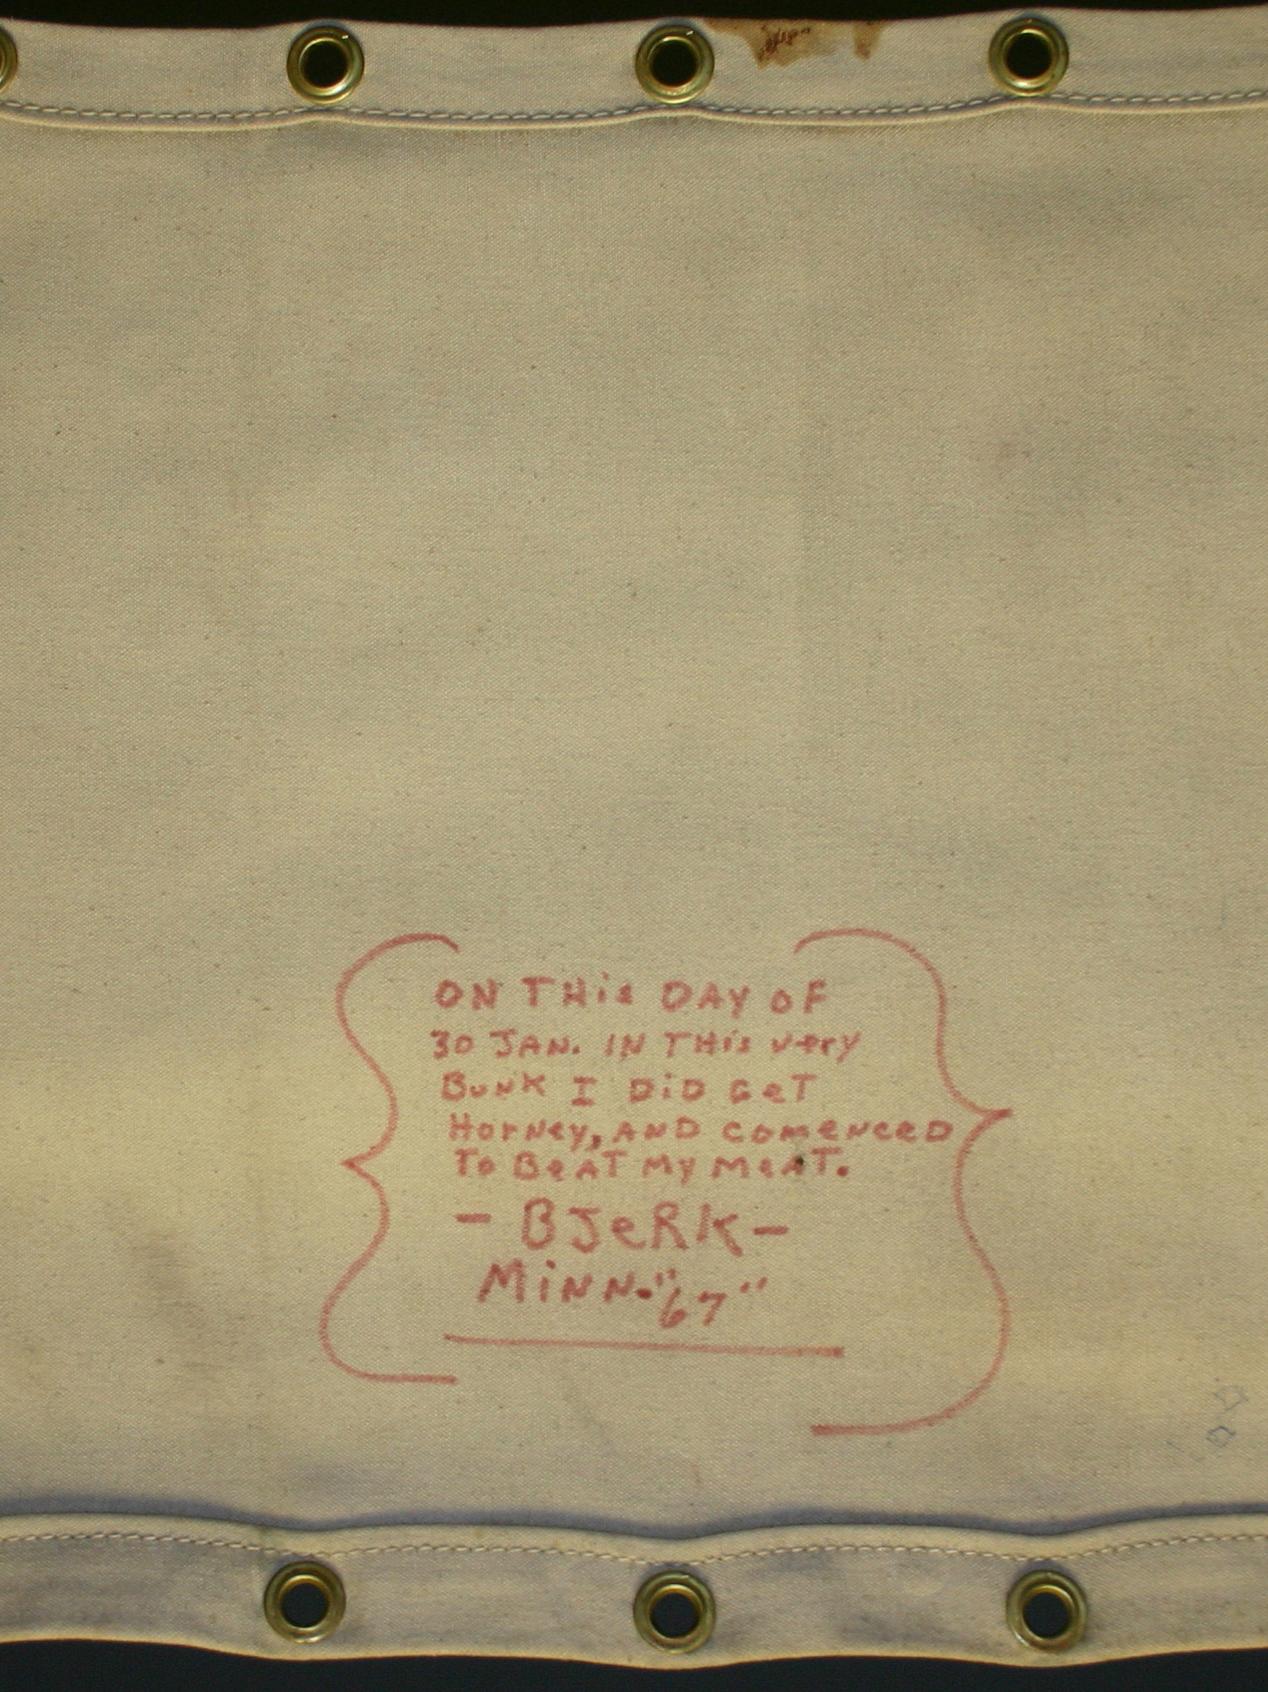 ON THis DAY OF
30 JAN. IN THis very
BunK I DiD GeT
HorNey, AND comeNceD
To BeAT My MeAT.
- BJeRK -
MiNN. "67"